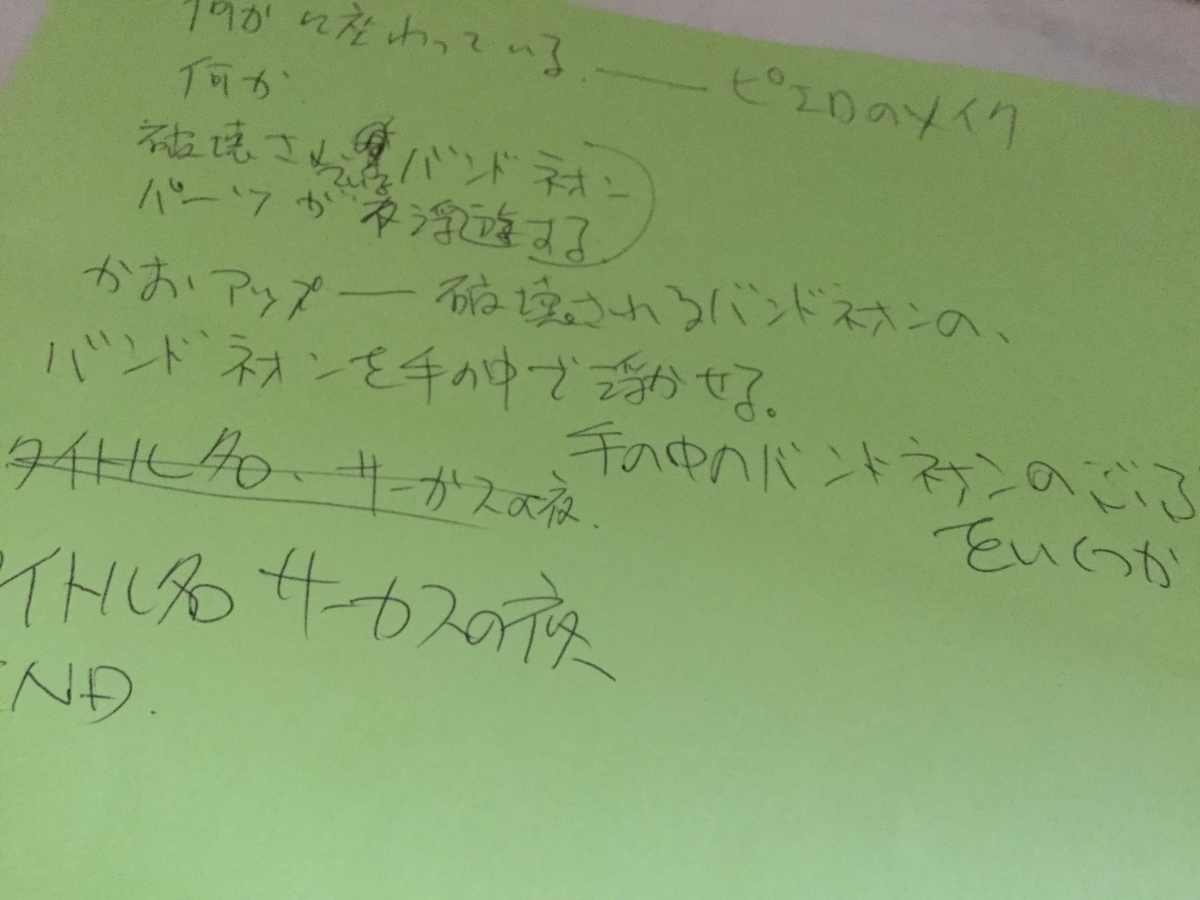 何かに座わっている.――ピエロのメイク
何か
破壊されているバンドネオン
パーツが浮遊する
かおアップ――破壊されるバンドネオンの、
バンドネオンを手の中で浮かせる。
タイトル名、サーカスの夜.
手の中のバンドネオンの
をいくつか
イトル名 サーカスの夜
END.